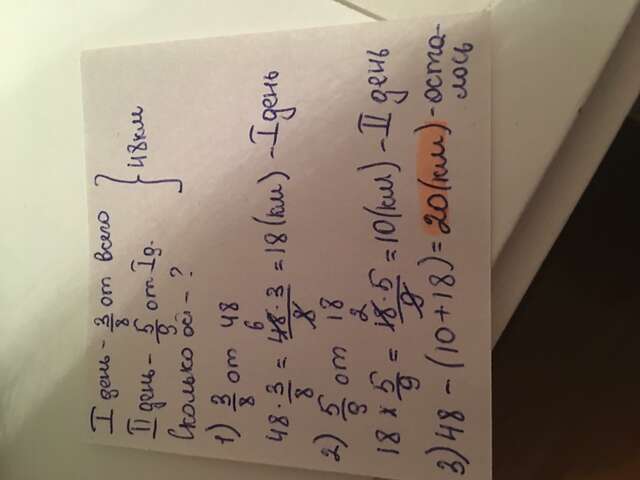 I день - 3/8 от всего } 48км
II день - 5/9 от I д.
Сколько ост - ?
1) 3/8 от 48
48 · 3/8 = 48 · 3/8 = 18 (км) - I день
6
2) 5/9 от 18
18 × 5/9 = 18 · 5/9 = 10 (км) - II день
2
3) 48 - (10 + 18) = 20 (км) - оста-
лось